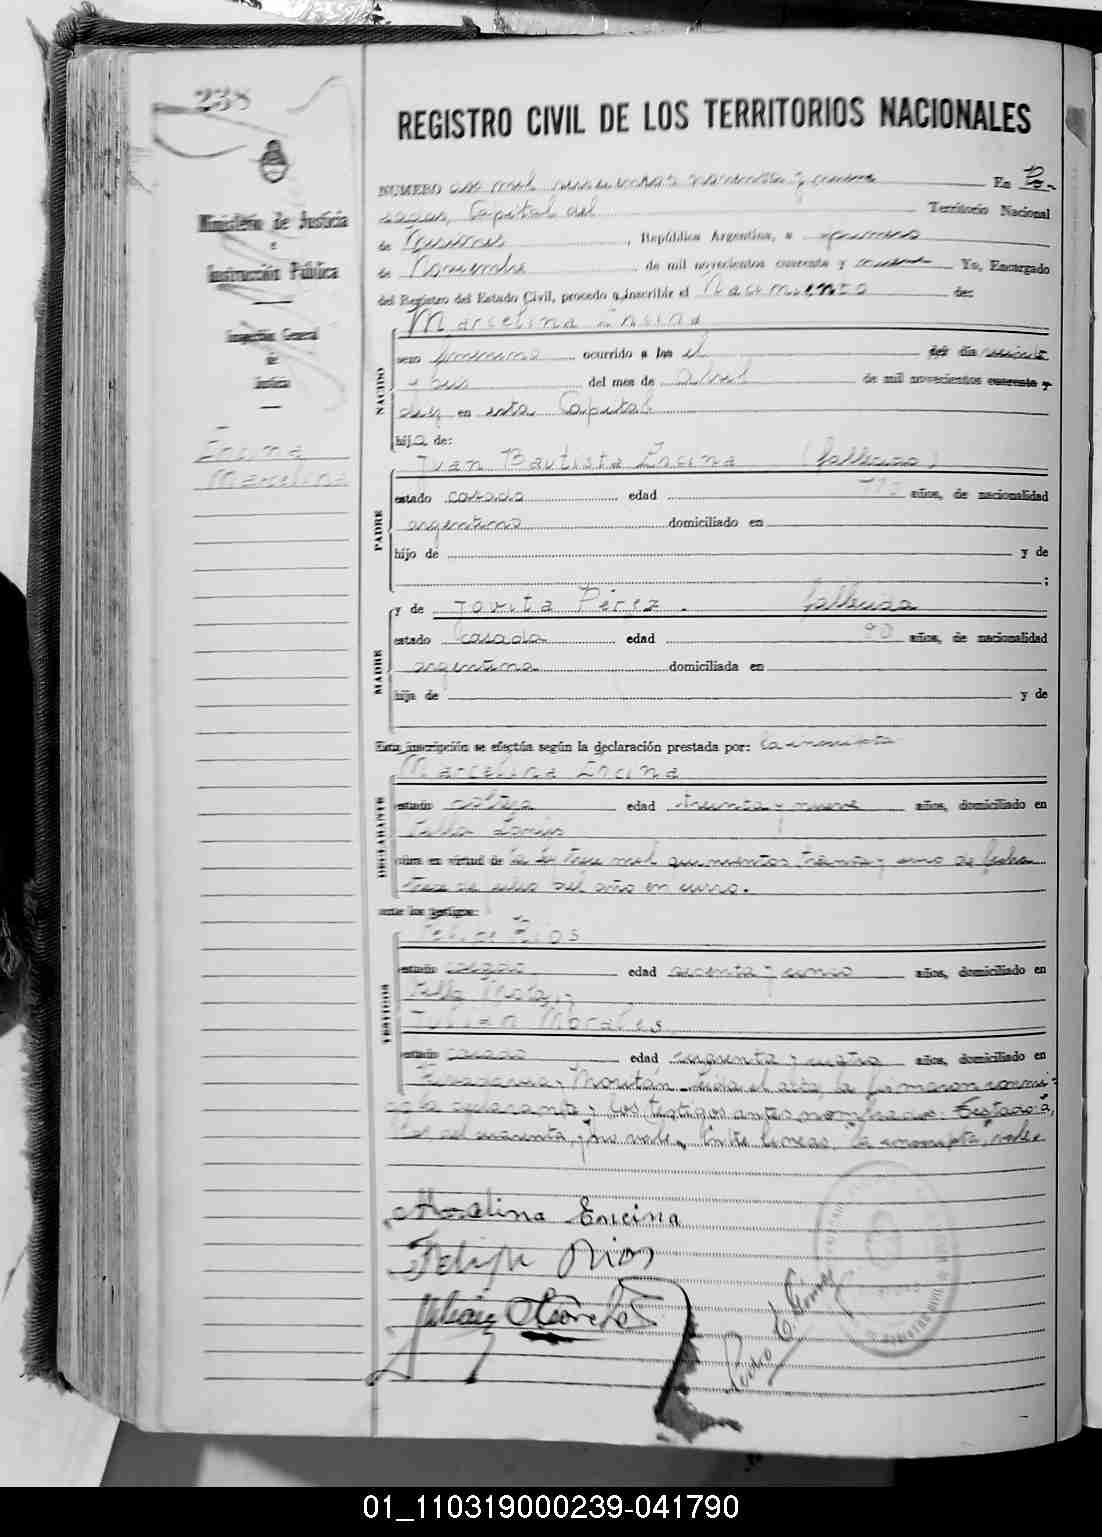 238
REGISTRO CIVIL DE LOS TERRITORIOS NACIONALES
Ministerio de Justicia
e
Instrucción Pública
Inspección General
de
Justicia
Encina
Marcelina
NUMERO dos mil novecientos noventa y nueve En Po-
sadas, Capital del Territorio Nacional
de Misiones, República Argentina, a primero
de Noviembre de mil novecientos cuarenta y nueve Yo, Encargado
del Registro del Estado Civil, procedo a inscribir el Nacimiento de:
NACIDO
Marcelina Encina
sexo femenino ocurrido a las el del día veinte
y seis del mes de abril de mil novecientos cuarenta y
diez en esta Capital
hija de:
PADRE
Juan Bautista Encina (fallecido)
estado casado edad años, de nacionalidad
argentino domiciliado en
hijo de y de
;
MADRE
y de Jovita Pérez. fallecida
estado casada edad años, de nacionalidad
argentina domiciliada en
hija de y de
Esta inscripción se efectúa según la declaración prestada por: la inscripta
DECLARANTE
Marcelina Encina
estado soltera edad treinta y nueve años, domiciliado en
Villa
obra en virtud de la ley trece mil quinientos treinta y uno de fecha
trece de julio del año en curso.
ante los testigos:
TESTIGOS
Felipe Rios
estado casado edad sesenta y cinco años, domiciliado en
Villa Mota, y
Julian Morales
estado casado edad cincuenta y cuatro años, domiciliado en
Leída el acta, la firmaron conmi-
go la declarante y los testigos antes nombrados. Testado:
del cuarenta y "no vale". Entre lineas, "la inscripta", vale.
Marcelina Encina
Felipe Rios
Julian Morales
Pedro E. Gómez
01_110319000239-041790